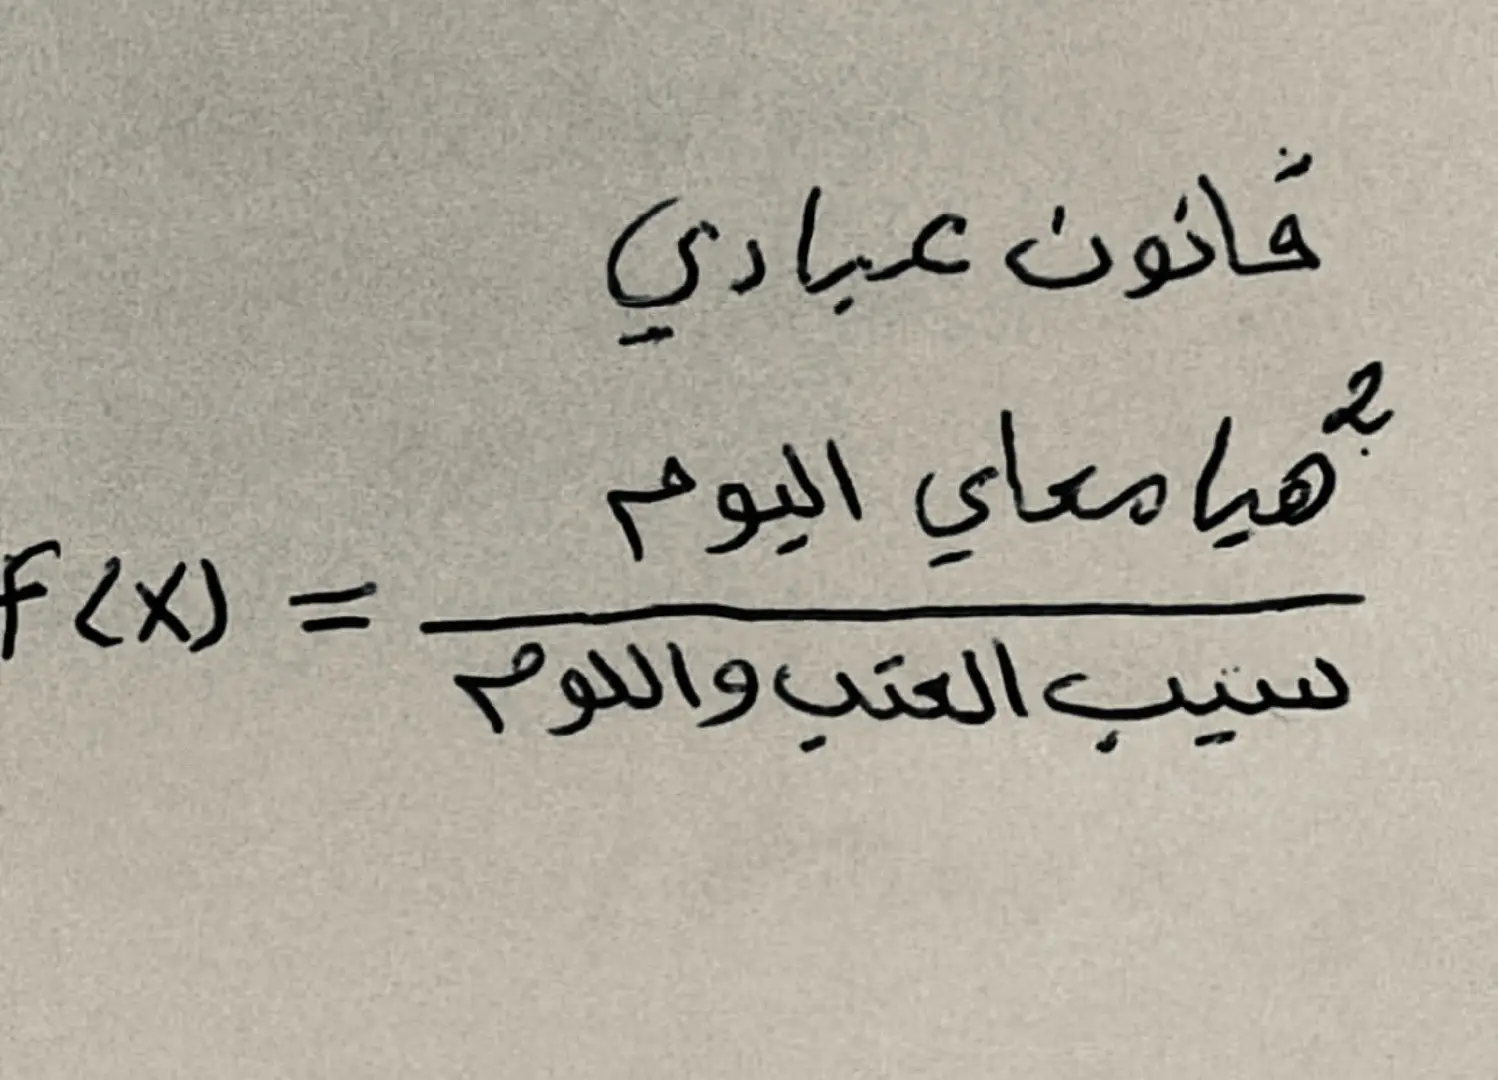 قانون عبادي
هيا معاي اليوم²
F(X) =
سيب العتب واللوم